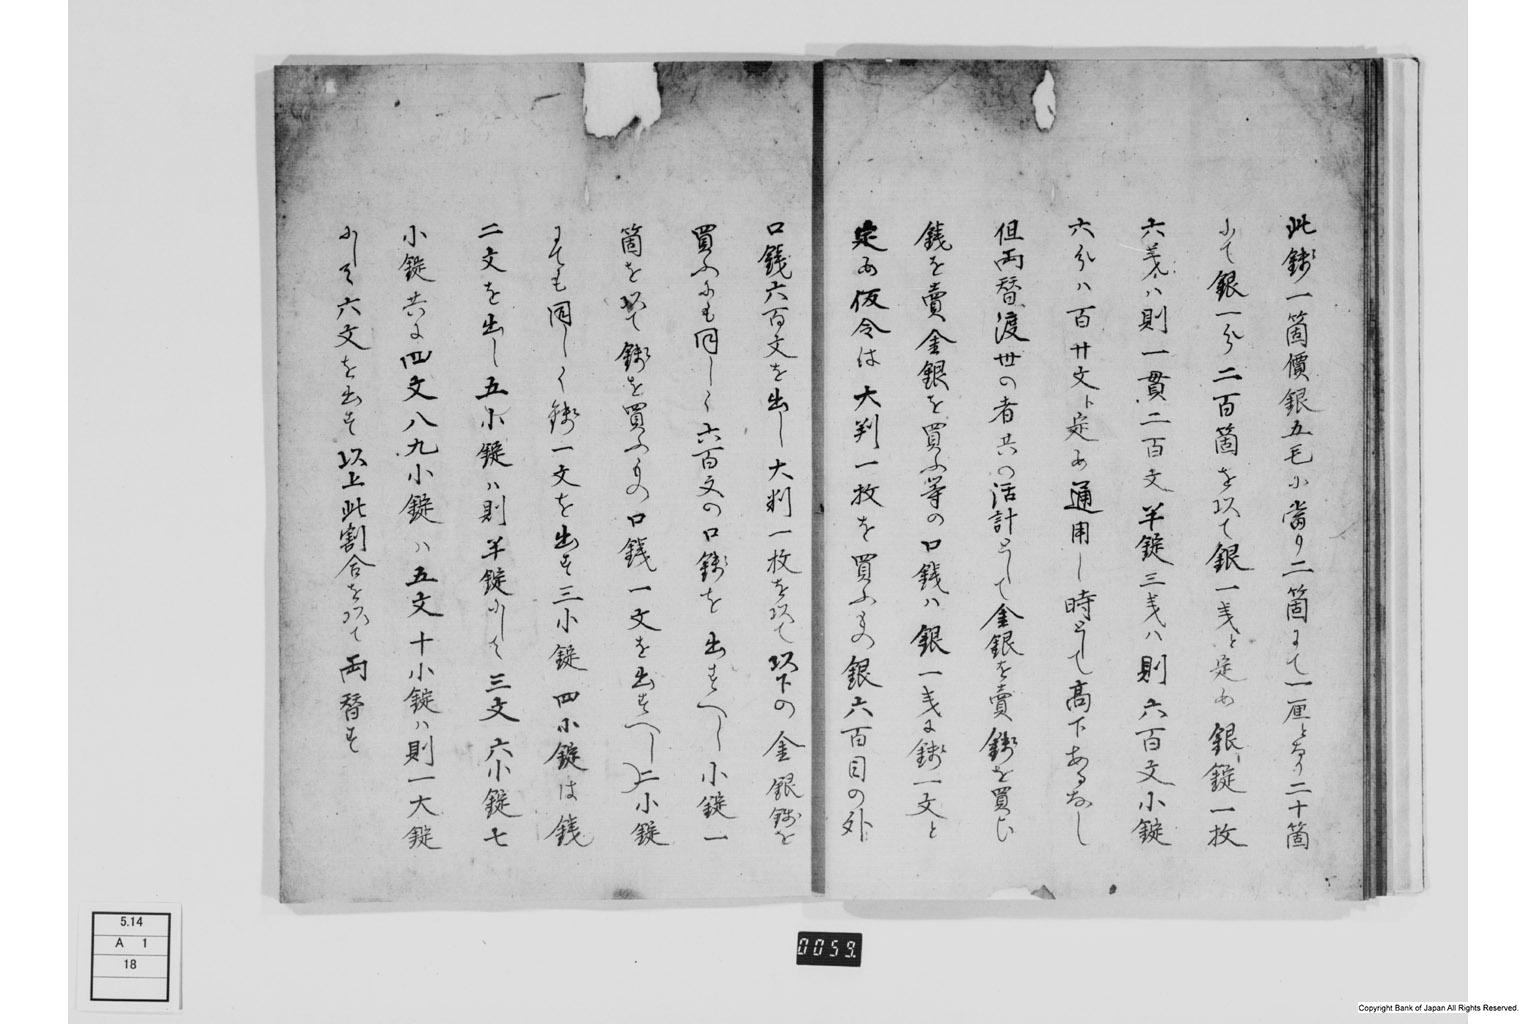 此銭一箇價銀五毛に當り二箇にて一厘となり二十箇
にて銀一分二百箇を以て銀一戔と定め銀錠一枚
六戔ハ則一貫二百文半錠三戔ハ則六百文小錠
六分ハ百廿文ト定め通用し時として高下あるなし
但両替渡世の者共の活計として金銀を賣銭を買ひ
銭を賣金銀を買ふ等の口銭ハ銀一戔に銭一文と
定め仮令は大判一枚を買ふもの銀六百目の外
口銭六百文を出し大判一枚を以て以下の金銀銭を
買ふにも同しく六百文の口銭を出すへし小錠一
箇を以て銭を買ふもの口銭一文を出すへし二小錠
にても同しく銭一文を出す三小錠四小錠は銭
二文を出し五小錠ハ則半錠にして三文六小錠七
小錠共に四文八九小錠ハ五文十小錠ハ則一大錠
にして六文を出す以上此割合を以て両替す
5.14
A 1
18
0059.
Copyright Bank of Japan All Rights Reserved.